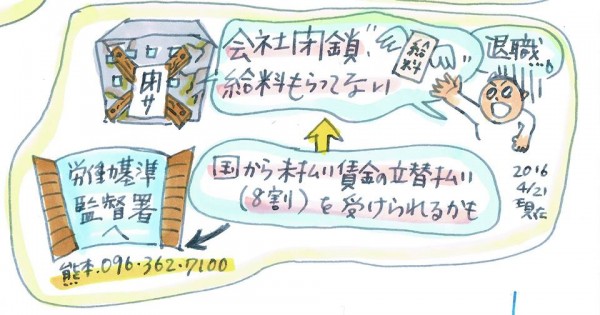 閉サ
会社閉鎖、
給料もらってない
給料
退職…。
労働基準
監督署
へ
国から未払い賃金の立替払い
(8割)を受けられるかも
2016
4/21
現在
熊本.096・362・7100